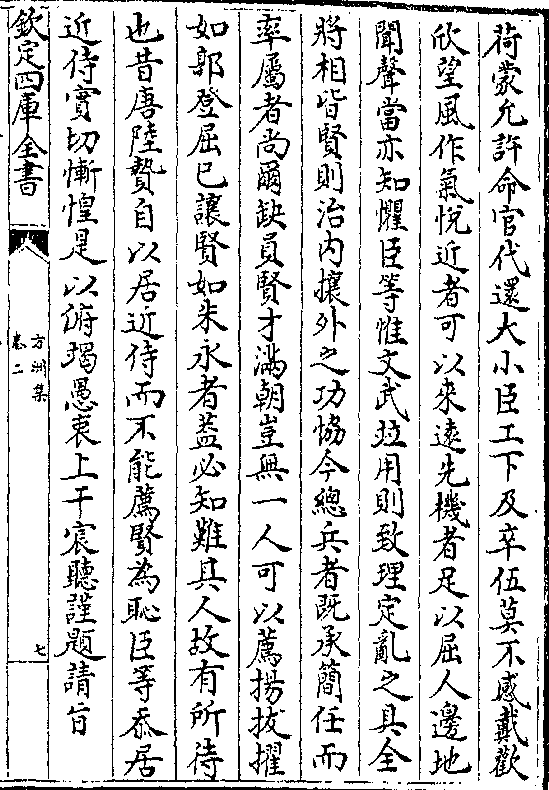 荷蒙允許命官代還大小臣工下及卒伍莫不感戴歡
欣望風作氣悅近者可以來遠先機者足以屈人邊地
聞聲當亦知懼臣等惟文武竝用則致理定亂之具全
將相皆賢則治内攘外之功恊今總兵者既承簡任而
率屬者尚爾缺員賢才滿朝豈無一人可以薦揚拔擢
如郭登屈已讓賢如朱永者葢必知難其人故有所待
也昔唐陸贄自以居近侍而不能薦賢為恥臣等忝居
近侍實切慚惶是以俯竭愚衷上干宸聽謹題請㫖
欽定四庫全書
方洲集
卷二
七